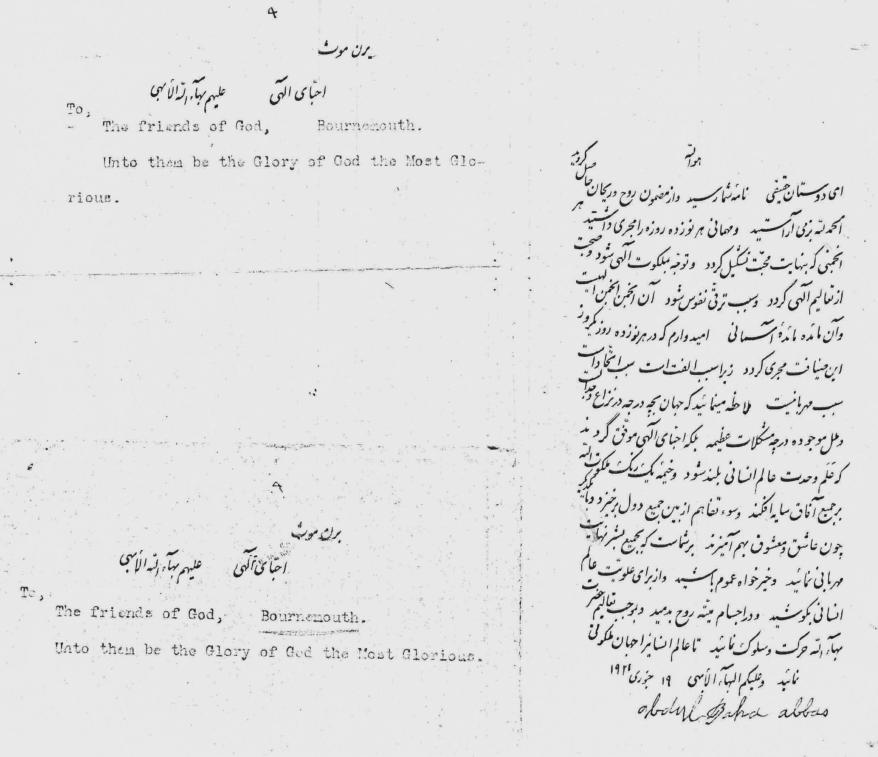 ۹
برن موث
احبای الهی علیهم بهآء الله الأبهی
To,
The friends of God, Bournemouth.
Unto them be the Glory of God the Most Glo-
rious.
۹
برن موث
احبای الهی علیهم بهآء الله الأبهی
To,
The friends of God, Bournemouth.
Unto them be the Glory of God the Most Glorious.
هوالله
ای دوستان حقیقی نامهٔ شما رسید و از مضمون روح و ریحان حاصل گردید
الحمدلله بزمی آراستید و مهمانی هر نوزده روزه را مجری داشتید هر
انجمنی که بنهایت محبت تشکیل گردد و توجه بملکوت الهی شود و صحبت
از تعالیم الهی گردد و سبب ترقی نفوس شود آن انجمن انجمن الهیست
و آن مائده مائدهٔ آسمانی امیدوارم که در هر نوزده روز یکروز
این ضیافت مجری گردد زیرا سبب الفت است سبب اتحاد است
سبب مهربانیست ملاحظه مینمائید که جهان بچه درجه در نزاع و جدالست
و ملل موجوده درچه مشکلات عظیمه بلکه احبای الهی موفق گردند
که علم وحدت عالم انسانی بلند شود و خیمه یک رنگ ملکوت الله
بر جمیع آفاق سایه افکند و سوء تفاهم از بین جمیع دول برخیزد و با یکدیگر
چون عاشق و معشوق بهم آمیزند بر شماست که بجمیع بشر نهایت
مهربانی نمائید و خیرخواه عموم باشید و از برای علویت عالم
انسانی بکوشید و در اجسام میته روح بدمید و بموجب تعالیم حضرت
بهآءالله حرکت و سلوک نمائید تا عالم انسانرا جهان ملکوتی
نمائید و علیکم البهآء الأبهی ۱۹ جنوری ۱۹۲۱
abdul Baha abbas